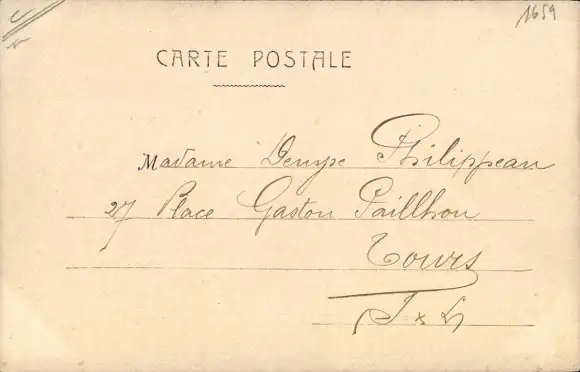 1659
CARTE POSTALE
Madame Denyse Philippeau
27 Place Gaston Pailhou
Tours
I & L